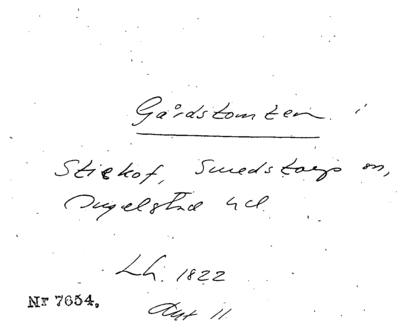 Gårdstomten i
Stiehof, Smedstorps sn,
Ingelstad hd
Lh. 1822
Akt 11
Nr 7654.